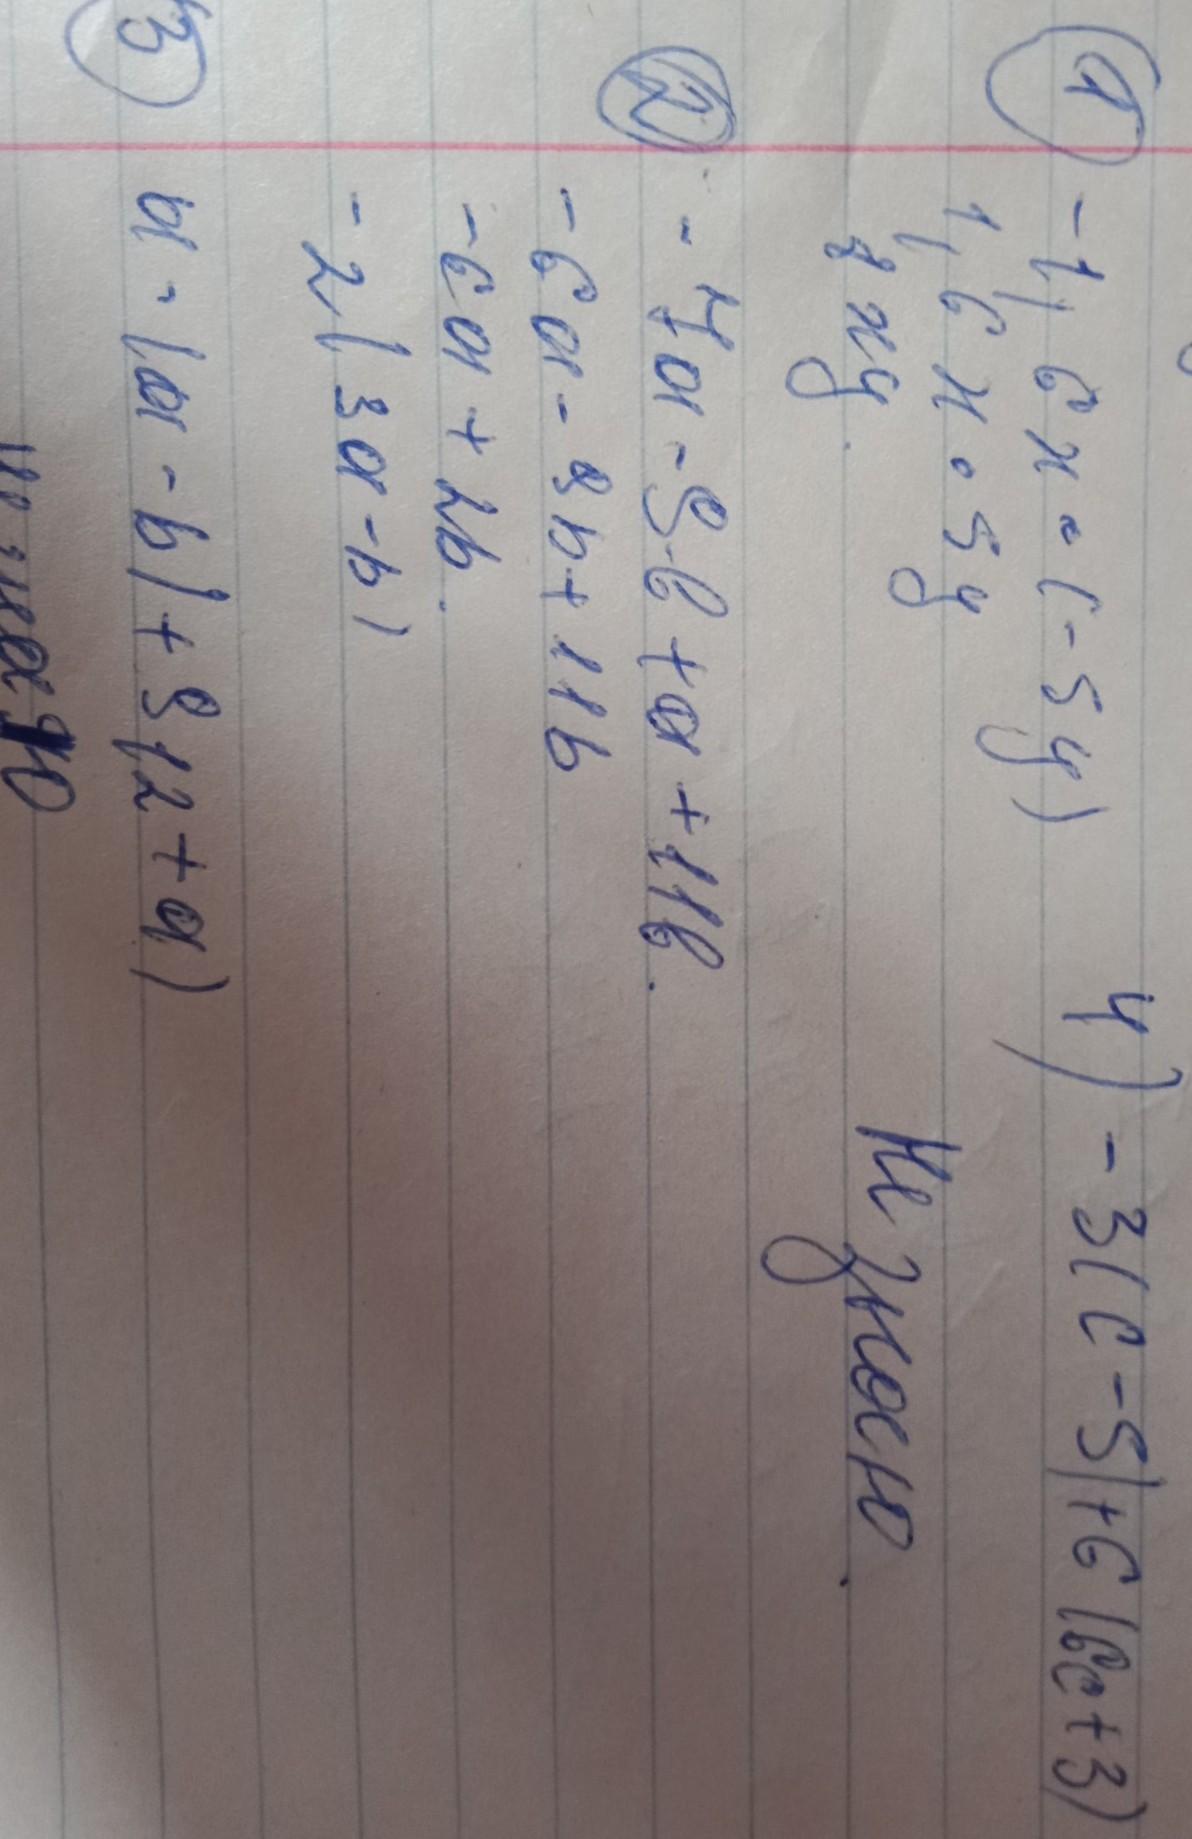 1 -1,6x·(-5y)
1,6x·5y
8xy.
2 - 7a-9b+a+11b.
-6a-9b+11b
-6a+2b.
-2(3a-b)
3 a-(a-b)+9(2+a)
Не знаю
4) -3(c-5)+6(6c+3)
Не знаю.